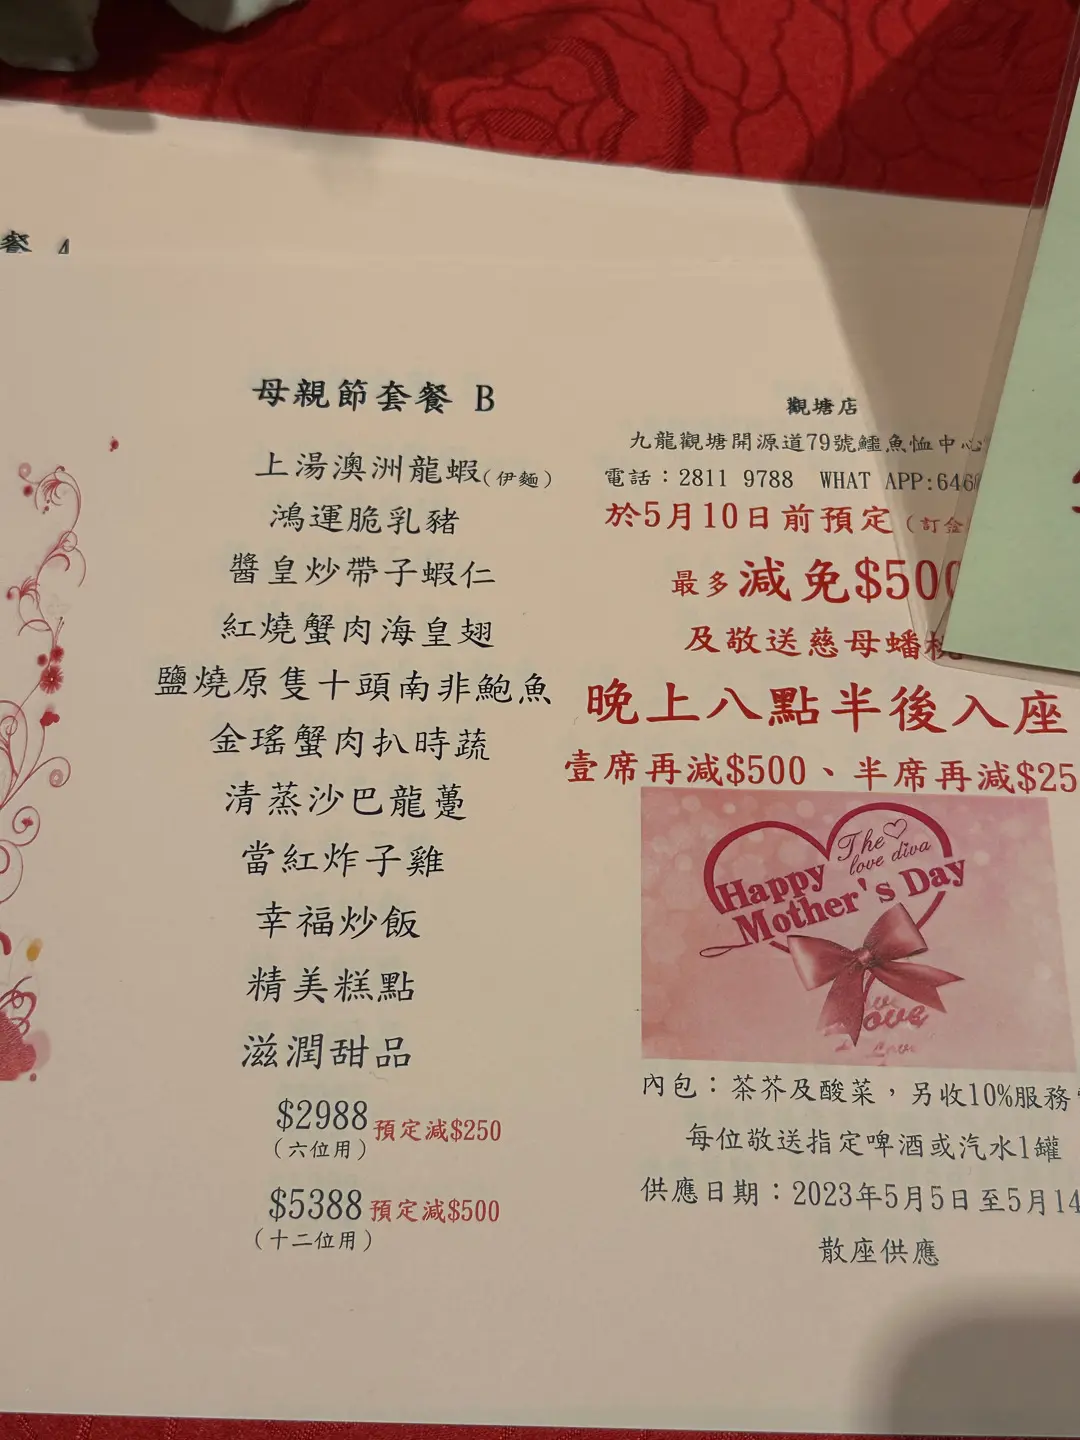 餐 A
母親節套餐 B
上湯澳洲龍蝦(伊麵)
鴻運脆乳豬
醬皇炒帶子蝦仁
紅燒蟹肉海皇翅
鹽燒原隻十頭南非鮑魚
金瑤蟹肉扒時蔬
清蒸沙巴龍躉
當紅炸子雞
幸福炒飯
精美糕點
滋潤甜品
$2988 預定減$250
(六位用)
$5388 預定減$500
(十二位用)
觀塘店
九龍觀塘開源道79號鱷魚恤中心
電話：2811 9788 WHAT APP:646
於5月10日前預定(訂金
最多減免$500
及敬送慈母蟠桃
晚上八點半後入座
壹席再減$500、半席再減$25
The love diva
Happy
Mother's Day
Love
內包：茶芥及酸菜，另收10%服務
每位敬送指定啤酒或汽水1罐
供應日期：2023年5月5日至5月14
散座供應